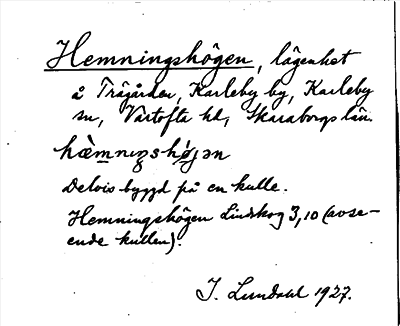 Hemningshögen, lägenhet
å Trägården, Karleby by, Karleby
sn, Vartofta hd, Skaraborgs län.
hæ̀mnıŋshø̜jən
Delvis byggd på en kulle.
Hemningshögen Lindskog 3,10 (avse-
ende kullen).
J. Lundahl 1927.